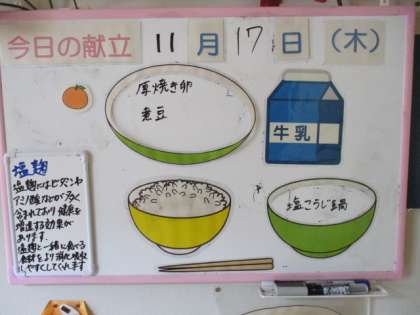 今日の献立 11月17日(木)
厚焼き卵
煮豆
牛乳
塩こうじ鍋
塩麹
塩麹にはビタミンや
アミノ酸などが多く
含まれており健康を
増進する効果が
あります。
塩麹と一緒に食べる
食材をより消化吸収
しやすくしてくれます